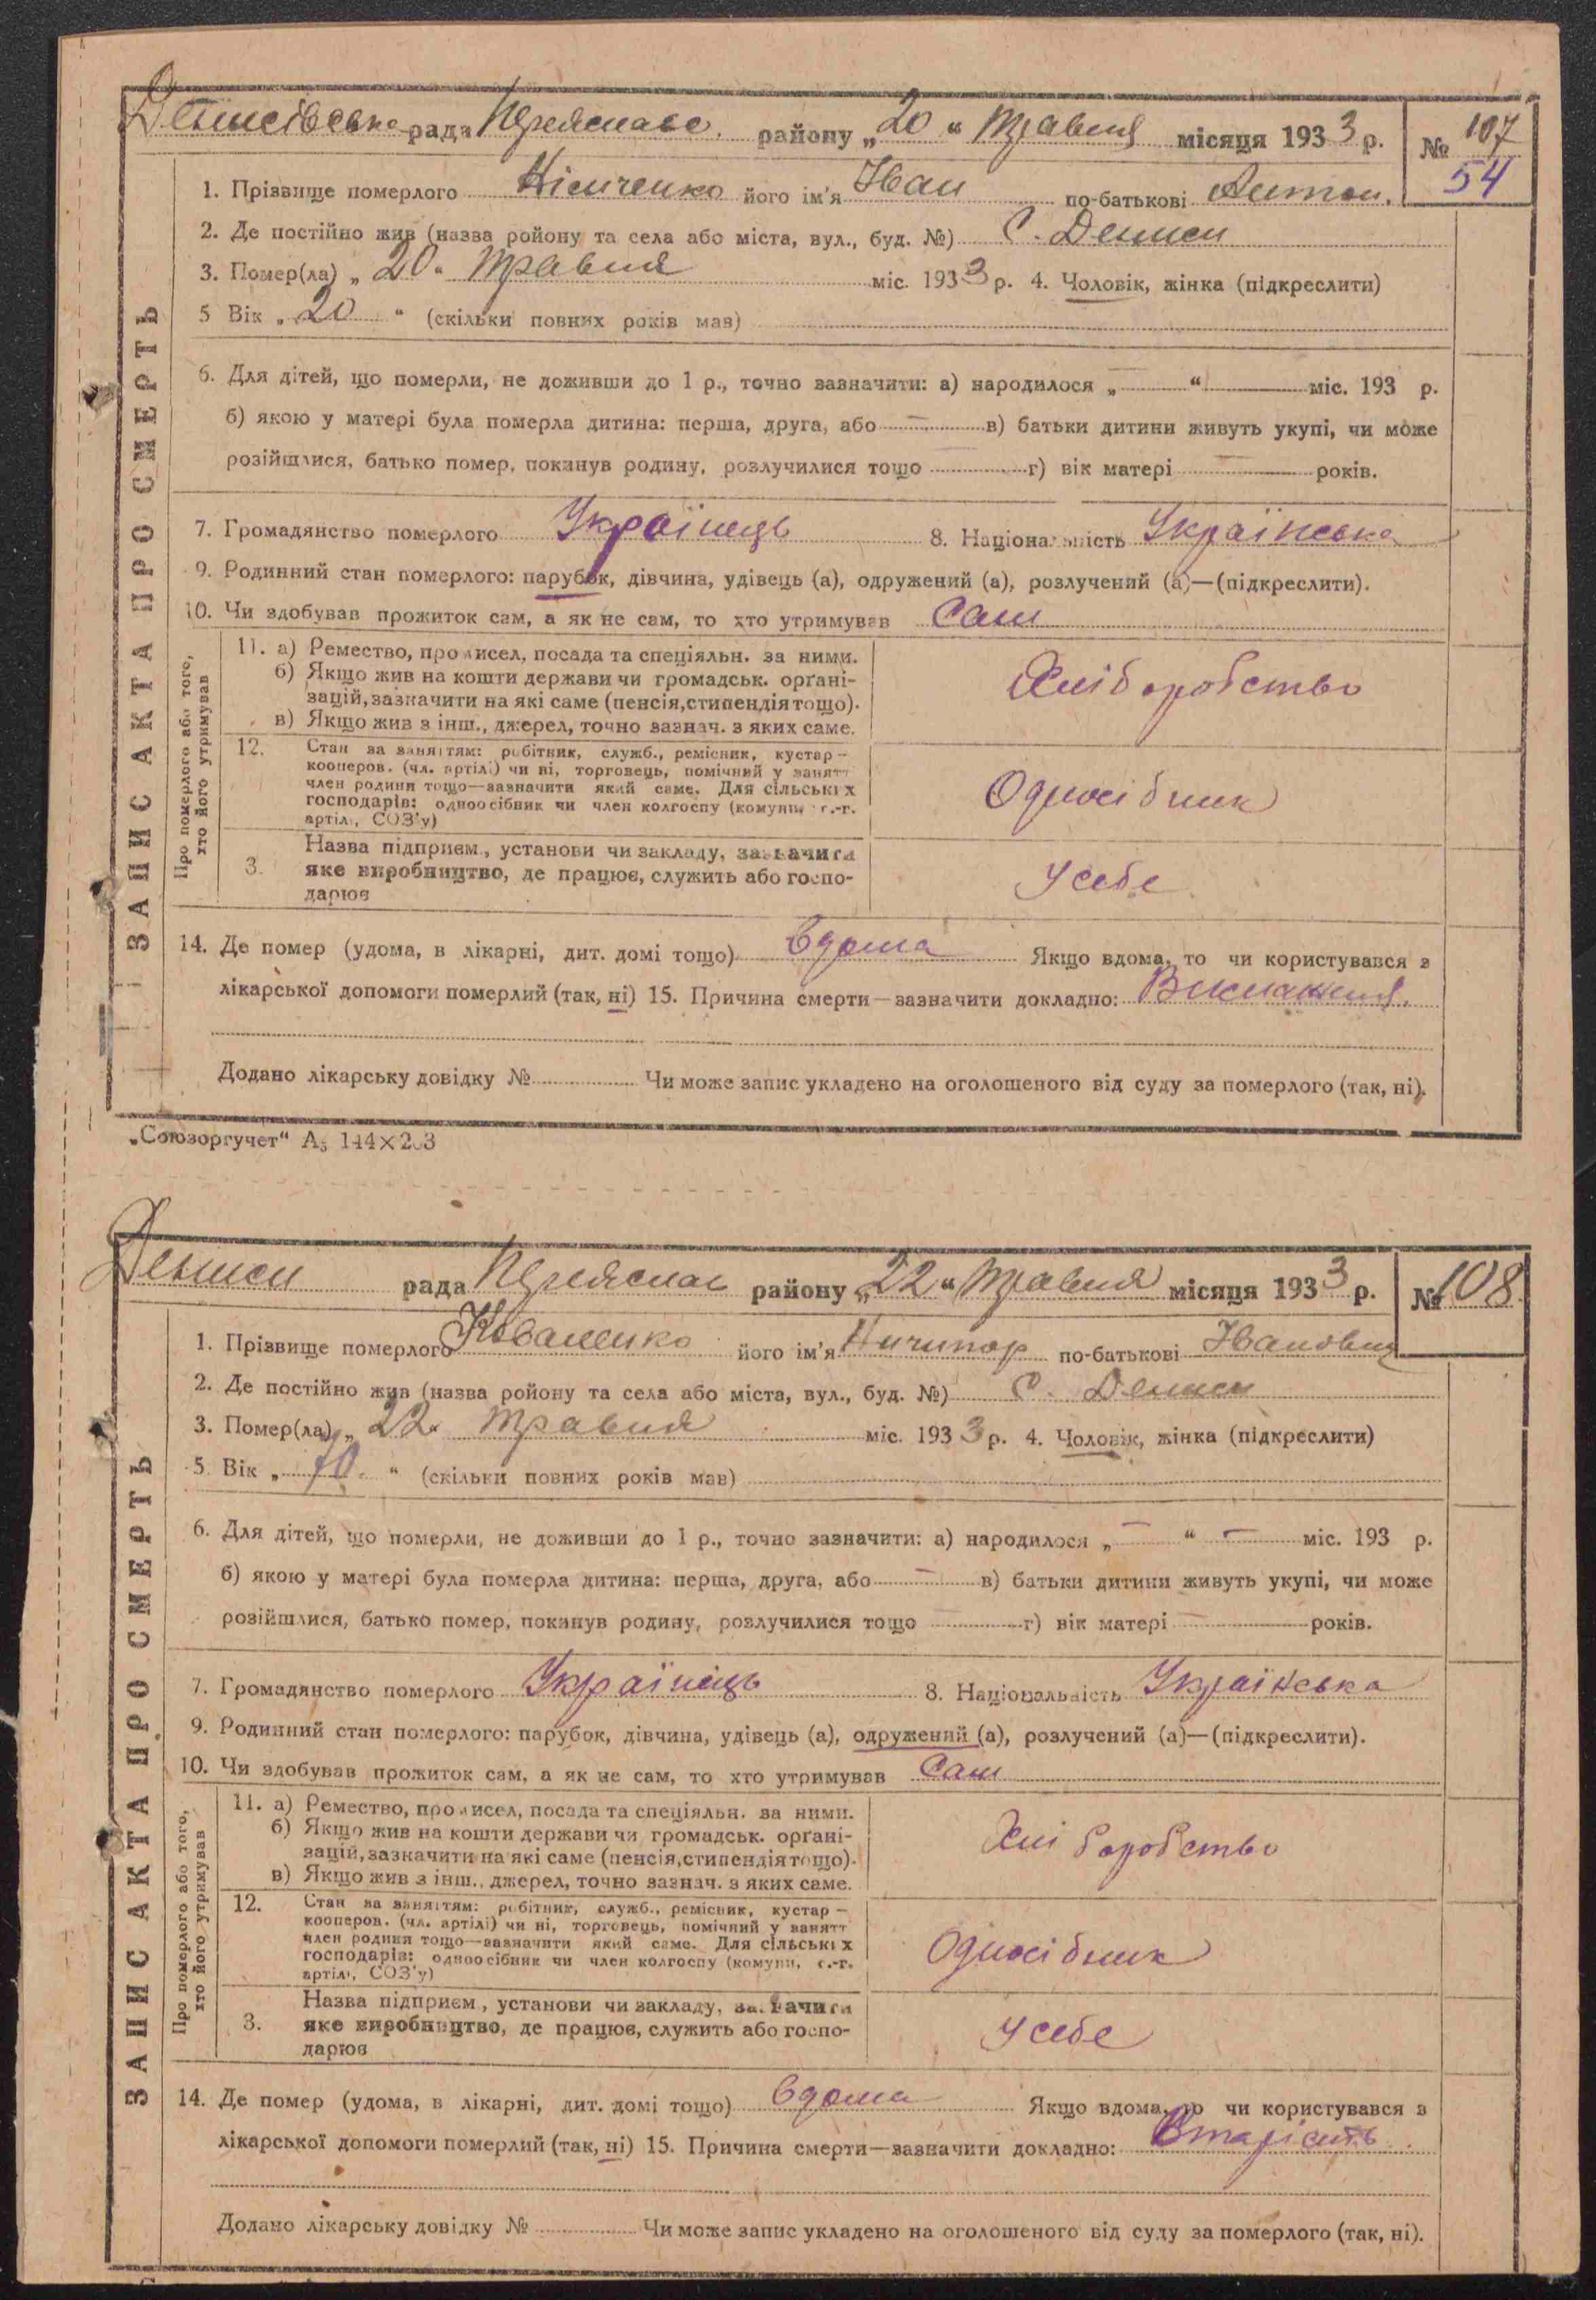 Денисівська рада Переяслав. району „20“ Травня місяця 1933 р. № 107
54
1. Прізвище померлого його ім'я Іван по-батькові Антон.
2. Де постійно жив (назва ройону та села або міста, вул., буд. №) С. Дениси
3. Помер(ла) „20“ Травня міс. 1933 р. 4. Чоловік, жінка (підкреслити)
5 Вік „20“ (скільки повних років мав)
6. Для дітей, що померли, не доживши до 1 р., точно зазначити: а) народилося „—“ — міс. 193 р.
б) якою у матері була померла дитина: перша, друга, або — в) батьки дитини живуть укупі, чи може
розійшлися, батько помер, покинув родину, розлучилися тощо г) вік матері — років.
7. Громадянство померлого Українець 8. Національність Українська
9. Родинний стан померлого: парубок, дівчина, удівець (а), одружений (а), розлучений (а)—(підкреслити).
10. Чи здобував прожиток сам, а як не сам, то хто утримував Сам
Про померлого або того, хто його утримував
11. а) Ремество, промисел, посада та спеціяльн. за ними.
б) Якщо жив на кошти держави чи громадськ. орґані-
зацій, зазначити на які саме (пенсія, стипендія тощо).
в) Якщо жив з інш., джерел, точно зазнач. з яких саме.
Хліборобство
12. Стан за заняттям: робітник, служб., ремісник, кустар —
кооперов. (чл. артілі) чи ні, торговець, помічний у занятт
член родини тощо—зазначити який саме. Для сільських
господарів: одноосібник чи член колгоспу (комуни, с.-г.
артілі, СОЗ'у)
Односібник
3. Назва підприєм., установи чи закладу, зазначити
яке виробництво, де працює, служить або госпо-
дарює
У себе
14. Де помер (удома, в лікарні, дит. домі тощо) вдома Якщо вдома, то чи користувався з
лікарської допомоги померлий (так, ні) 15. Причина смерти—зазначити докладно: Виснаження.
Додано лікарську довідку № Чи може запис укладено на оголошеного від суду за померлого (так, ні).
ЗАПИС АКТА ПРО СМЕРТЬ
„Союзоргучет“ А5 144×203
Дениси рада Переяслав району „22“ Травня місяця 1933 р. № 108
1. Прізвище померлого Коваленко його ім'я Ничипор по-батькові Іванович
2. Де постійно жив (назва ройону та села або міста, вул., буд. №) С. Дениси
3. Помер(ла) „22“ Травня міс. 1933 р. 4. Чоловік, жінка (підкреслити)
5 Вік „70“ (скільки повних років мав)
6. Для дітей, що померли, не доживши до 1 р., точно зазначити: а) народилося „—“ — міс. 193 р.
б) якою у матері була померла дитина: перша, друга, або — в) батьки дитини живуть укупі, чи може
розійшлися, батько помер, покинув родину, розлучилися тощо г) вік матері — років.
7. Громадянство померлого Українець 8. Національність Українська
9. Родинний стан померлого: парубок, дівчина, удівець (а), одружений (а), розлучений (а)—(підкреслити).
10. Чи здобував прожиток сам, а як не сам, то хто утримував Сам
Про померлого або того, хто його утримував
11. а) Ремество, промисел, посада та спеціяльн. за ними.
б) Якщо жив на кошти держави чи громадськ. орґані-
зацій, зазначити на які саме (пенсія, стипендія тощо).
в) Якщо жив з інш., джерел, точно зазнач. з яких саме.
Хліборобство
12. Стан за заняттям: робітник, служб., ремісник, кустар —
кооперов. (чл. артілі) чи ні, торговець, помічний у занятт
член родини тощо—зазначити який саме. Для сільських
господарів: одноосібник чи член колгоспу (комуни, с.-г.
артілі, СОЗ'у)
Односібник
3. Назва підприєм., установи чи закладу, зазначити
яке виробництво, де працює, служить або госпо-
дарює
У себе
14. Де помер (удома, в лікарні, дит. домі тощо) вдома Якщо вдома, то чи користувався з
лікарської допомоги померлий (так, ні) 15. Причина смерти—зазначити докладно: Старість.
Додано лікарську довідку № Чи може запис укладено на оголошеного від суду за померлого (так, ні).
ЗАПИС АКТА ПРО СМЕРТЬ